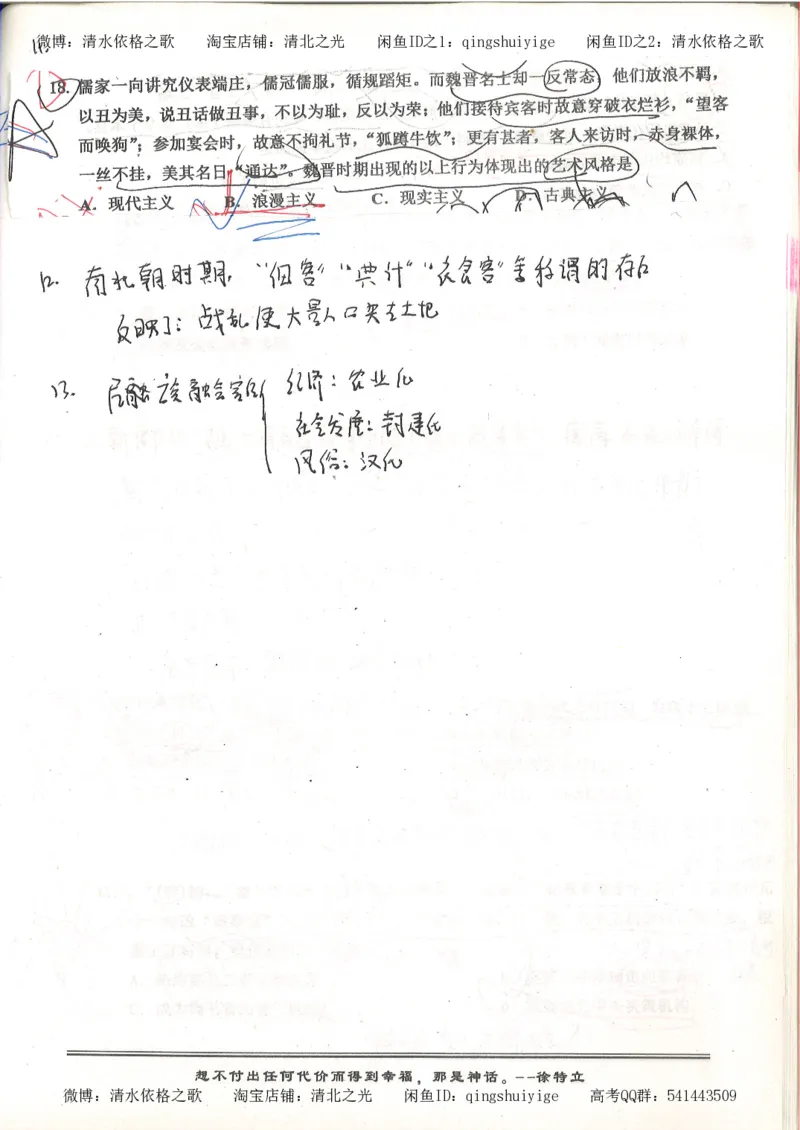 微博：清水依格之歌 淘宝店铺：清北之光 闲鱼ID之1：qingshuiyige 闲鱼ID之2：清水依格之歌
18. 儒家一向讲究仪表端庄，儒冠儒服，循规蹈矩。而魏晋名士却一反常态，他们放浪不羁，
以丑为美，说丑话做丑事，不以为耻，反以为荣；他们接待宾客时故意穿破衣烂衫，“望客
而唤狗”；参加宴会时，故意不拘礼节，“狐蹲牛饮”；更有甚者，客人来访时，赤身裸体，
一丝不挂，美其名曰“通达”。魏晋时期出现的以上行为体现出的艺术风格是
A．现代主义 B．浪漫主义 C．现实主义 D．古典主义
12. 南北朝时期，“佃客”“典计”“衣食客”等称谓的存在
反映了：战乱使大量人口失去土地
13. 民族融合 经济：农业化
社会发展：封建化
风俗：汉化
想不付出任何代价而得到幸福，那是神话。--徐特立
微博：清水依格之歌 淘宝店铺：清北之光 闲鱼ID：qingshuiyige 高考QQ群：541443509